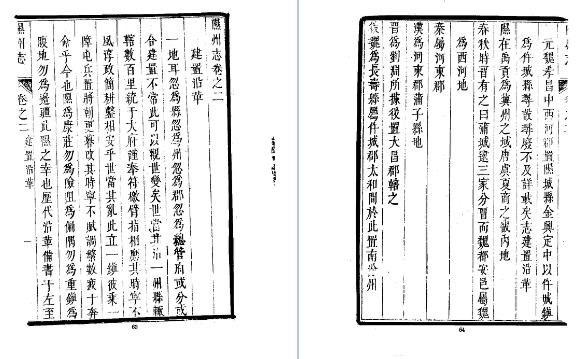 隰州志卷之二
建置沿革
一地耳忽爲縣忽爲州忽爲郡忽爲總管府或分或
合建置不常此可以觀世變矣世當其治一州縣輒
轄數百里統于大府謹奉符檄臂指相應其時寧不
風淳政簡耕鑿相安乎世當其亂此立一雄彼乘一
障屯兵置將朝更暮改其時寧不賦調繁數奔
命乎今也隰爲康莊勿爲險阻爲偏隅勿爲重鎮爲
腹地勿爲邊疆此隰之幸也歷代沿革備書于左至
隰州志 卷之二 建置沿革 一
63
元魏孝昌中西河郡置隰城縣金興定中以仵城鎮
爲仵城縣尋散尋廢不及詳載矣志建置沿革
隰在禹貢爲冀州之域唐虞夏商之內地
春秋時晉有之曰蒲城迨三家分晉而魏都安邑屬魏
爲西河地
秦屬河東郡
漢爲河東郡蒲子縣地
晉爲劉淵所據後置大昌郡轄之
後魏爲長壽縣屬仵城郡太和間於此置南汾州
64